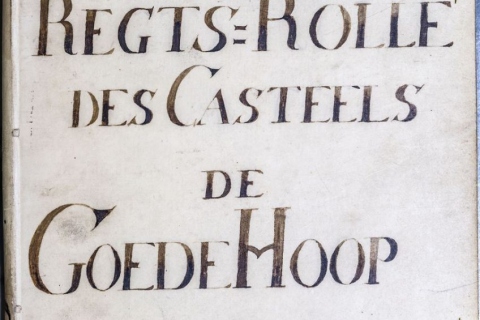 REGTS=ROLLE
DES CASTEELS
DE
GOEDE HOOP